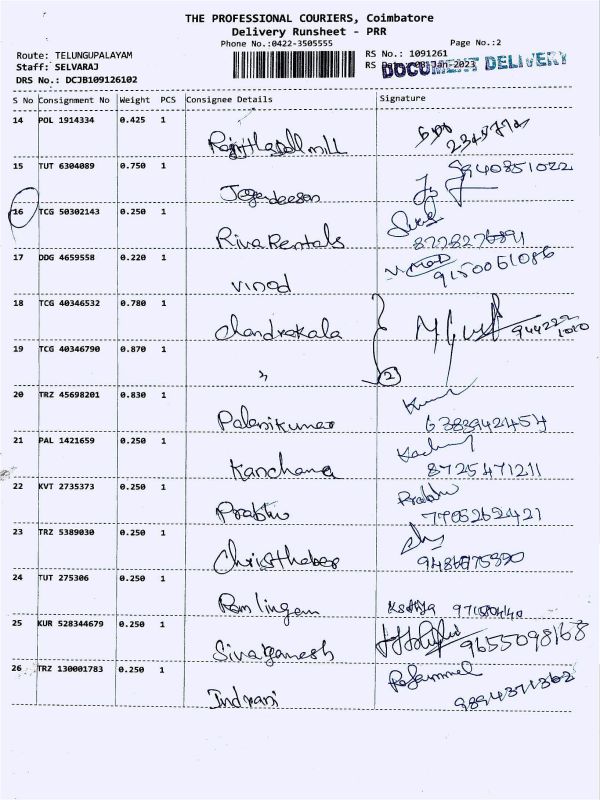 THE PROFESSIONAL COURIERS, Coimbatore
Delivery Runsheet - PRR
Phone No.:0422-3505555 Page No.:2
Route: TELUNGUPALAYAM RS No.: 1091261
Staff: SELVARAJ RS Date: 03-Jan-2023
DOCUMENT DELIVERY
DRS No.: DCJB109126102
S No Consignment No Weight PCS Consignee Details Signature
14 POL 1914334 0.425 1
15 TUT 6304089 0.750 1 Jagadeesan 9940851022
16 TCG 50302143 0.250 1 Riva Rentals 8778276891
17 DDG 4659558 0.220 1 Vinod 9150061086
18 TCG 40346532 0.780 1 Chandrakala 944222 1010
19 TCG 40346790 0.870 1 " 2
20 TRZ 45698201 0.830 1 Palanikumar
21 PAL 1421659 0.250 1 Kanchana 8725471211
22 KVT 2735373 0.250 1 Prabhu Prabhu 7705262421
23 TRZ 5389030 0.250 1
24 TUT 275306 0.250 1 Ram lingam
25 KUR 528344679 0.250 1 Sivaganesh 9655098168
26 TRZ 130001783 0.250 1 Indrani 9894371362